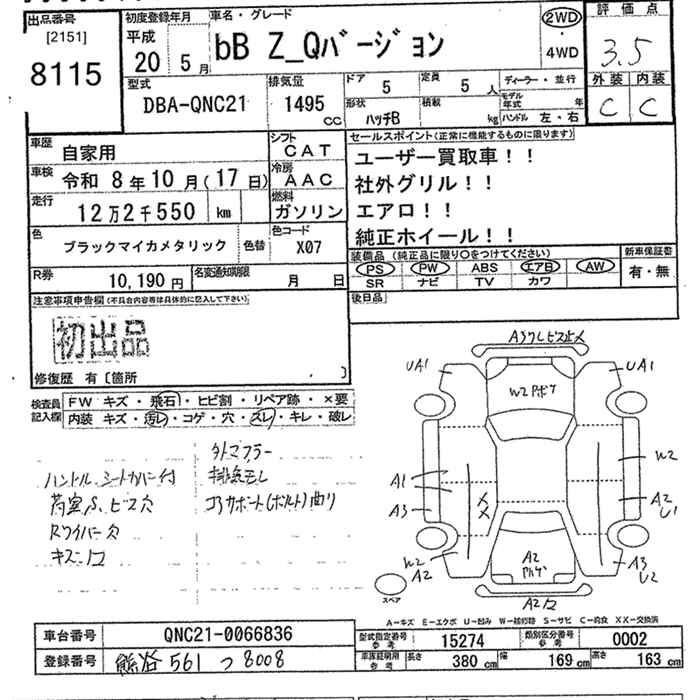 出品番号
[2151]
8115
初度登録年月
平成
20 5月
車名・グレード
bB Z_Qバージョン
2WD
・
4WD
評価点
3.5
外装 内装
C C
型式
DBA-QNC21
排気量
1495 cc
ドア 5
定員 5人
形状 ハッチB
積載 kg
ディーラー・並行
モデル年式 年
ハンドル 左・右
車歴 自家用
シフト CAT
車検 令和 8年10月(17日)
冷房 AAC
走行 12万2千550 km
燃料 ガソリン
色 ブラックマイカメタリック 色替
色コード X07
R券 10,190円
名変通知期限 月 日
セールスポイント(正常に機能するものに限ります)
ユーザー買取車！！
社外グリル！！
エアロ！！
純正ホイール！！
装備品 (純正品に限り〇をつけてください)
PS PW ABS エアB AW
SR ナビ TV カワ
新車保証書
有・無
後日品
注意事項申告欄(不具合内容等は具体的に記入して下さい)
初出品
修復歴 有〔箇所 〕
検査員記入欄
FW キズ・飛石・ヒビ割・リペア跡・×要
内装 キズ・汚レ・コゲ・穴・スレ・キレ・破レ
ハンドル、シートカバー付
荷室S、ビス穴
Rワイパー欠
キズ凹コ
外マフラー
排気モレ
コアサポート(ボルト)曲り
UA1
UA1
W2
A1
A3
A2
U1
W2
A2
A2
A3
U2
スペア
A-キズ E-エクボ U-凹み W-補修跡 S-サビ C-腐食 XX-交換済
車台番号 QNC21-0066836
登録番号 熊谷 561 つ 8008
型式指定番号 参考 15274
類別区分番号 参考 0002
車庫証明用 参考 長さ 380 cm 幅 169 cm 高さ 163 cm